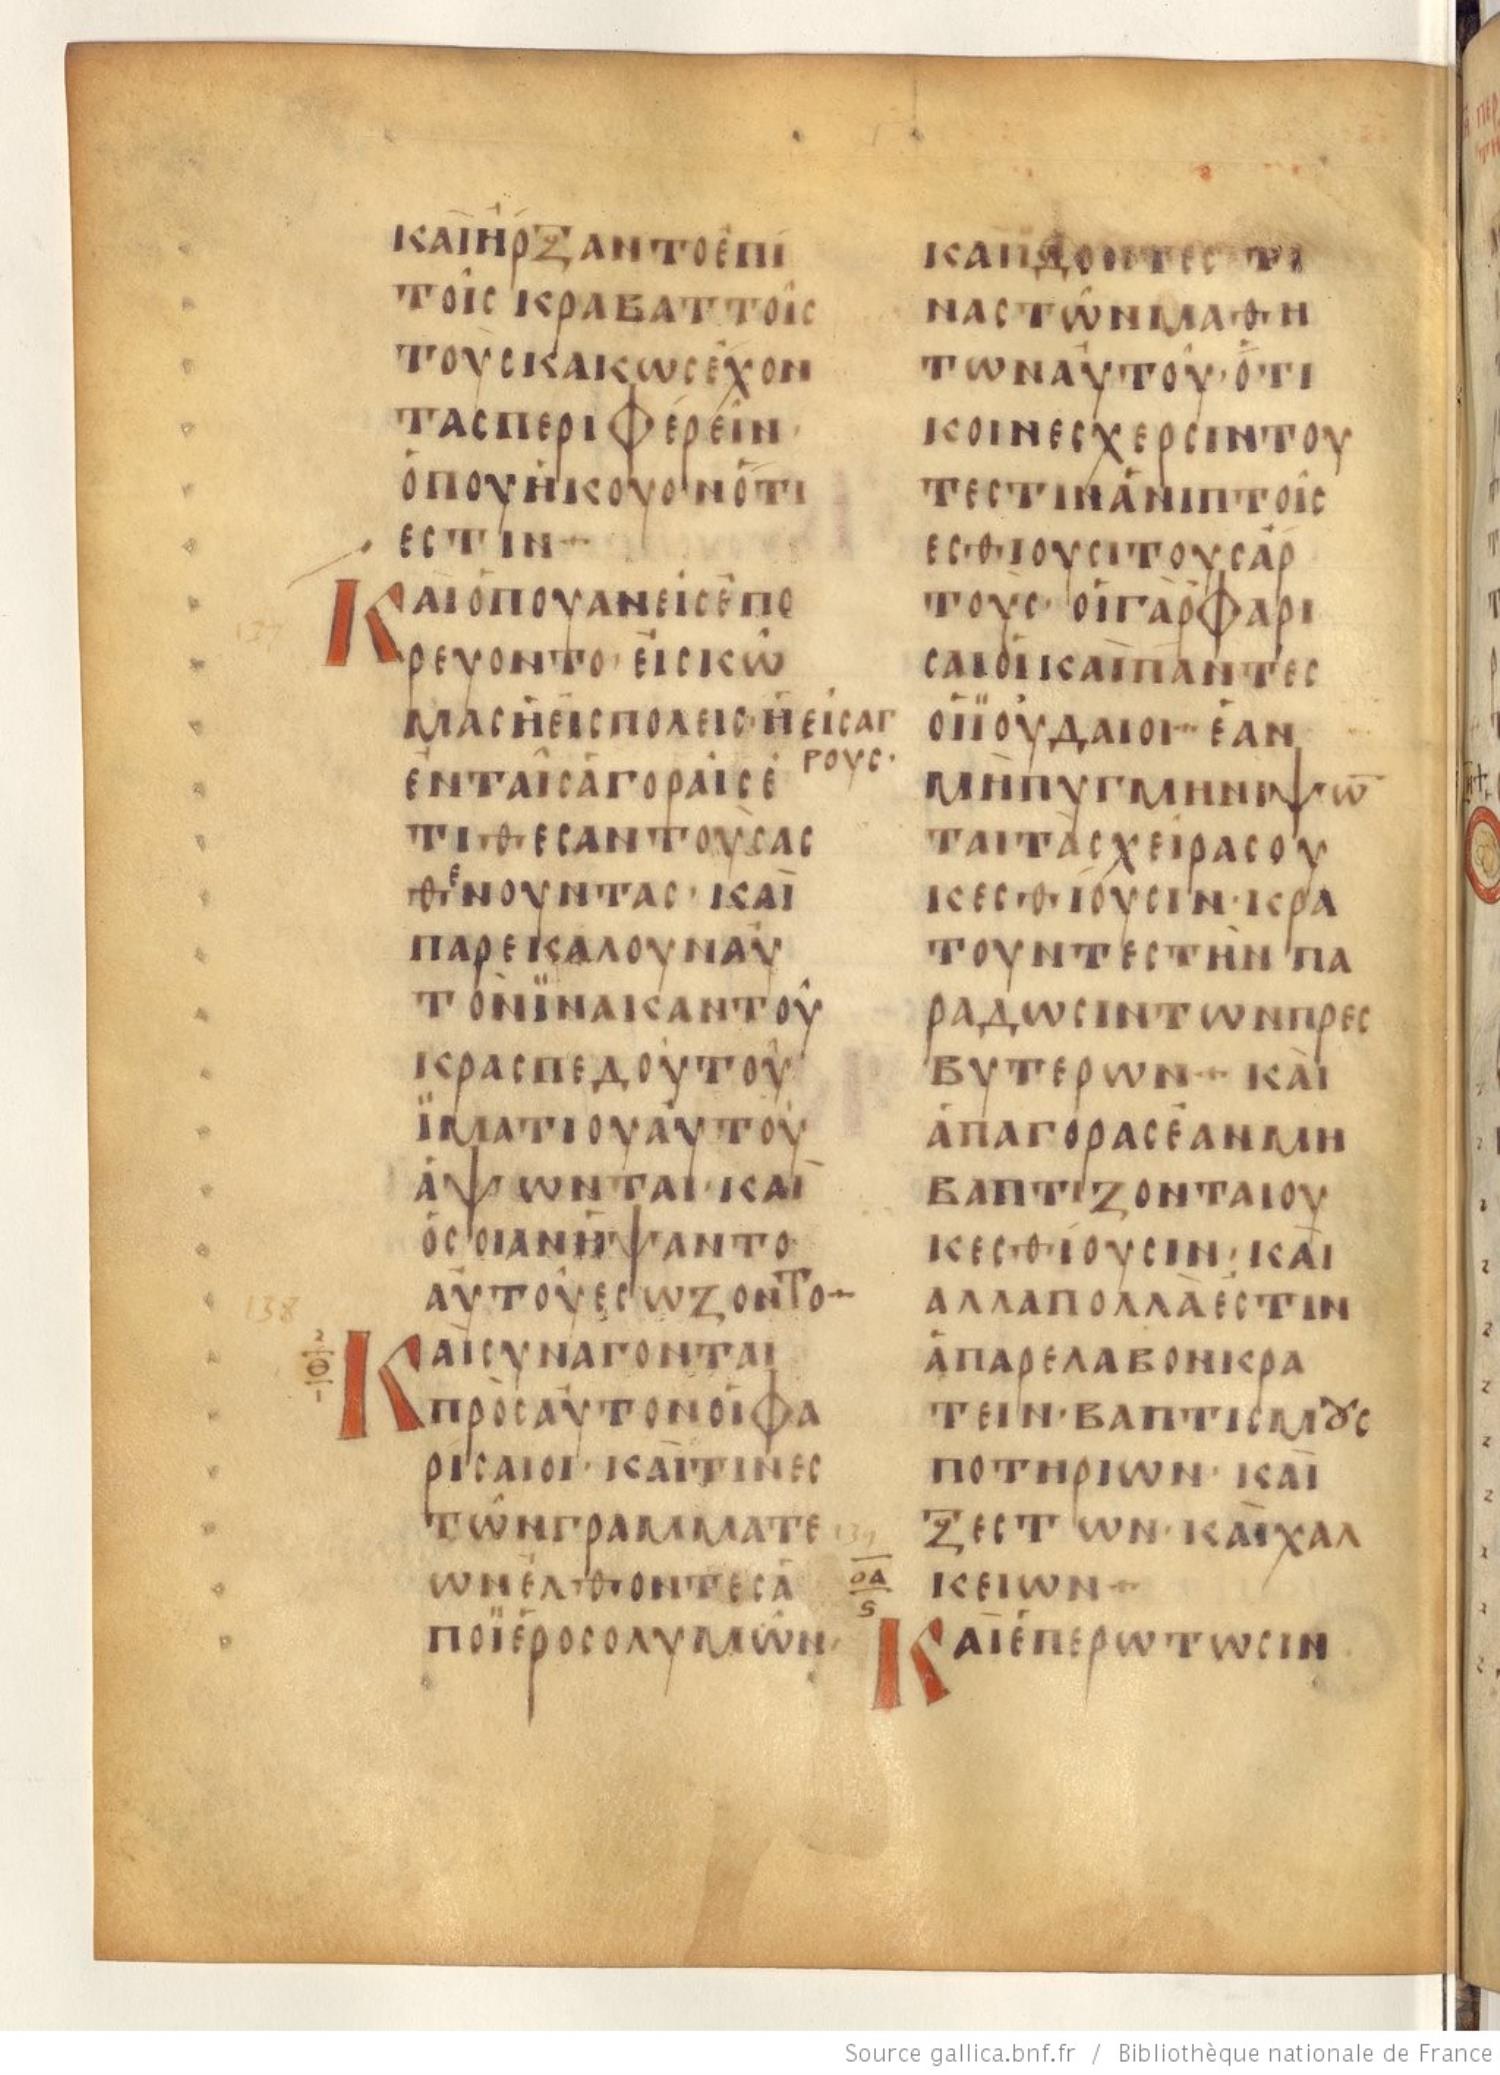 ΚΑΙΗΡΞΑΝΤΟΕΠΙ
ΤΟΙΣ ΚΡΑΒΑΤΤΟΙΣ
ΤΟΥΣΚΑΚΩΣΕΧΟΝ
ΤΑΣΠΕΡΙΦΕΡΕΙΝ·
ΟΠΟΥΗΚΟΥΟΝΟΤΙ
ΕΣΤΙΝ
137
ΚΑΙΟΠΟΥΑΝΕΙΣΕΠΟ
ΡΕΥΟΝΤΟ·ΕΙΣΚΩ
ΜΑΣΗΕΙΣΠΟΛΕΙΣ·ΗΕΙΣΑΓ
ΡΟΥΣ·
ΕΝΤΑΙΣΑΓΟΡΑΙΣΕ
ΤΙΘΕΣΑΝΤΟΥΣΑΣ
ΘΕΝΟΥΝΤΑΣ· ΚΑΙ
ΠΑΡΕΚΑΛΟΥΝΑΥ
ΤΟΝΪΝΑΚΑΝΤΟΥ
ΚΡΑΣΠΕΔΟΥΤΟΥ
ΪΜΑΤΙΟΥΑΥΤΟΥ
ΑΨΩΝΤΑΙ·ΚΑΙ
ΟΣΟΙΑΝΗΨΑΝΤΟ
ΑΥΤΟΥΕΣΩΖΟΝΤΟ
138
ΚΑΙΣΥΝΑΓΟΝΤΑΙ
ΠΡΟΣΑΥΤΟΝΟΙΦΑ
ΡΙΣΑΙΟΙ· ΚΑΙΤΙΝΕΣ
ΤΩΝΓΡΑΜΜΑΤΕ
ΩΝΕΛΘΟΝΤΕΣΑ
ΠΟΪΕΡΟΣΟΛΥΜΩΝ·
ΚΑΙΪΔΟΝΤΕΣ ΤΙ
ΝΑΣΤΩΝΜΑΘΗ
ΤΩΝΑΥΤΟΥ·ΟΤΙ
ΚΟΙΝΕΣΧΕΡΣΙΝΤΟΥ
ΤΕΣΤΙΝΑΝΙΠΤΟΙΣ
ΕΣΘΙΟΥΣΙΤΟΥΣΑΡ
ΤΟΥΣ· ΟΙΓΑΡΦΑΡΙ
ΣΑΙΟΙΚΑΙΠΑΝΤΕΣ
ΟΙΪΟΥΔΑΙΟΙ ΕΑΝ
ΜΗΠΥΓΜΗΝΙΨΩ̅
ΤΑΙΤΑΣΧΕΙΡΑΣΟΥ
ΚΕΣΘΙΟΥΣΙΝ·ΚΡΑ
ΤΟΥΝΤΕΣΤΗΝ ΠΑ
ΡΑΔΩΣΙΝΤΩΝΠΡΕΣ
ΒΥΤΕΡΩΝ ΚΑΙ
ΑΠΑΓΟΡΑΣΕΑΝΜΗ
ΒΑΠΤΙΖΟΝΤΑΙΟΥ
ΚΕΣΘΙΟΥΣΙΝ·ΚΑΙ
ΑΛΛΑΠΟΛΛΑΕΣΤΙΝ
ΑΠΑΡΕΛΑΒΟΝΚΡΑ
ΤΕΙΝ·ΒΑΠΤΙΣΜȣΣ
ΠΟΤΗΡΙΩΝ· ΚΑΙ
ΞΕΣΤΩΝ·ΚΑΙΧΑΛ
ΚΕΙΩΝ
139
ΟΑ
ΚΑΙΕΠΕΡΩΤΩΣΙΝ
Source gallica.bnf.fr / Bibliothèque nationale de France